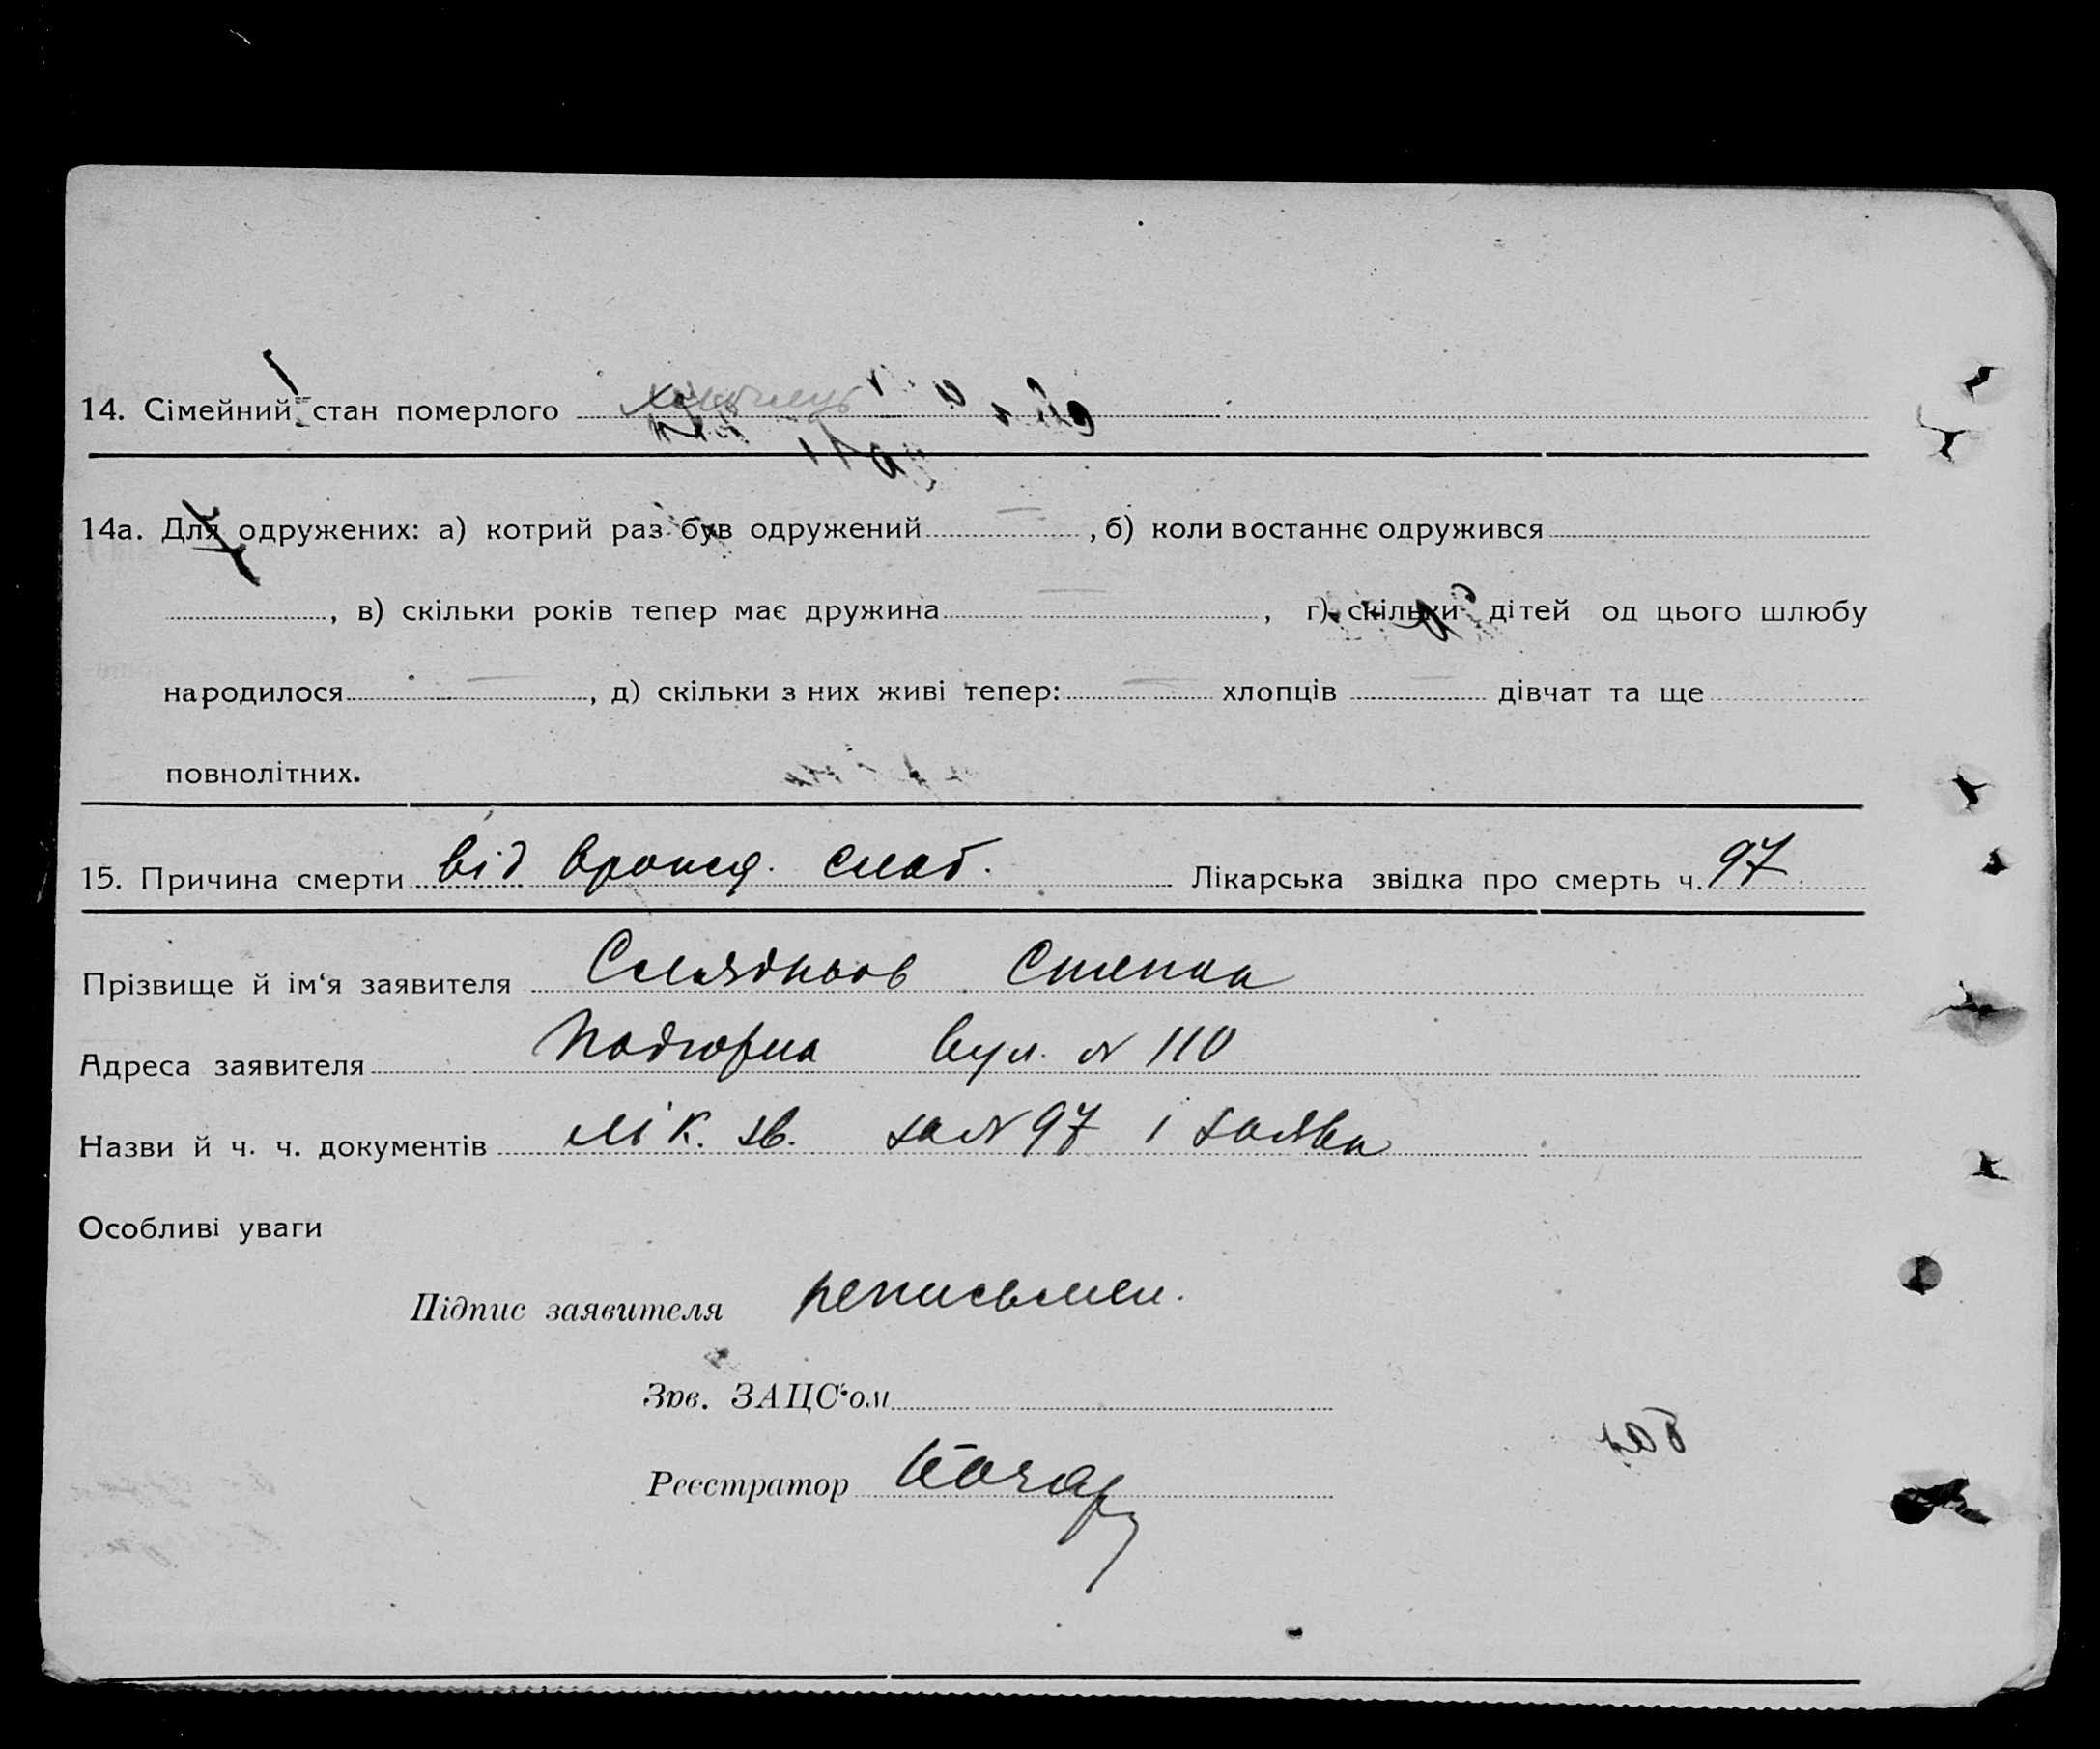 14. Сімейний стан померлого
14а. Для одружених: а) котрий раз був одружений — , б) коли востаннє одружився
, в) скільки років тепер має дружина — , г) скільки дітей од цього шлюбу
народилося — , д) скільки з них живі тепер: — хлопців — дівчат та ще
повнолітних.
15. Причина смерти від врожд. слаб. Лікарська звідка про смерть ч. 97
Прізвище й ім‘я заявителя Степан
Адреса заявителя Подгорна вул. № 110
Назви й ч. ч. документів лік. зв. за № 97 і заява
Особливі уваги
Підпис заявителя неписьмен.
Зав. ЗАЦС‘ом
Реєстратор